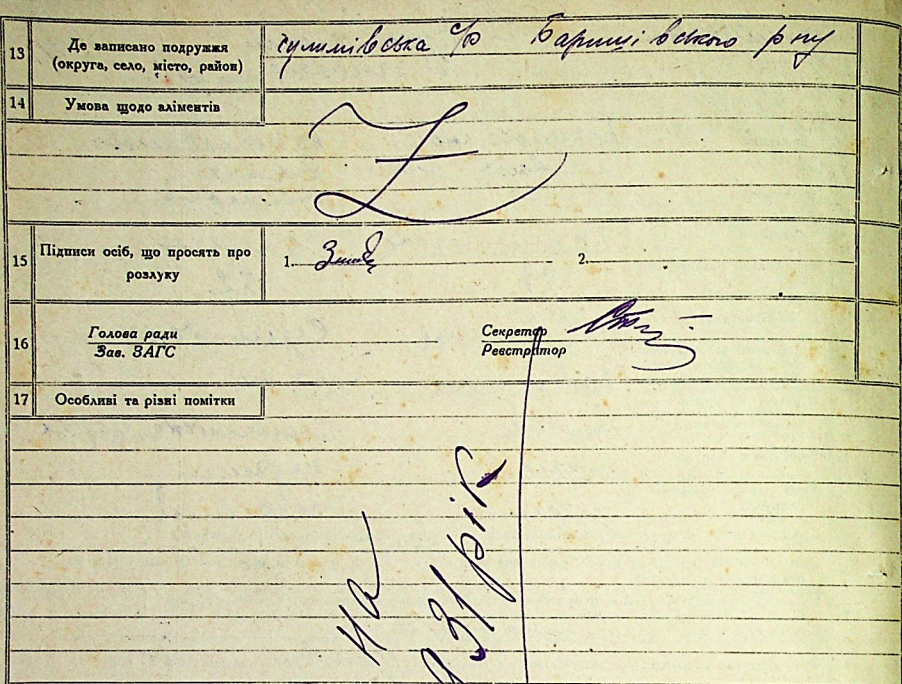 13 Де записано подружжя (округа, село, місто, район)
сулимівська с/р Баришівського р-ну
14 Умова щодо аліментів
Z
15 Підписи осіб, що просять про розлуку
1. 2.
16 Голова ради
Зав. ЗАГС
Секретар
Реєстратор
17 Особливі та різні помітки
на
31 рік